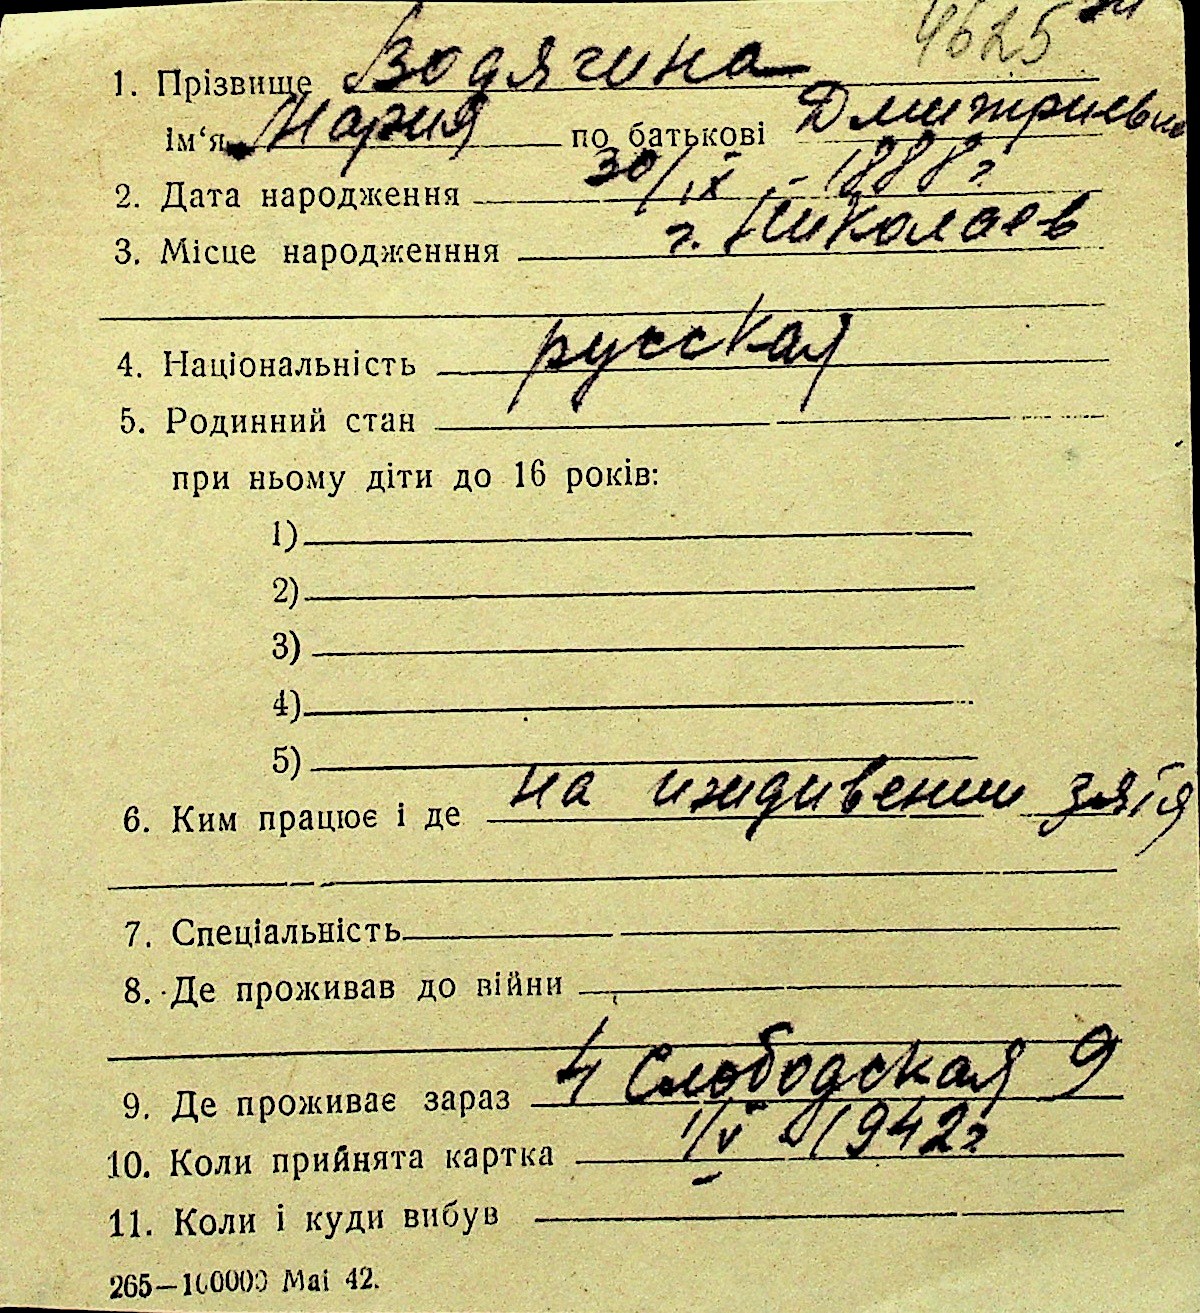 4625
1. Прізвище Водягина
ім‘я Мария по батькові Дмитриевна
2. Дата народження 30/IX - 1888 г.
3. Місце народженння г. Николаев
4. Національність русская
5. Родинний стан
при ньому діти до 16 років:
1)
2)
3)
4)
5)
6. Ким працює і де на иждивении зятя
7. Спеціальність
8. Де проживав до війни
9. Де проживає зараз 4 Слободская 9
10. Коли прийнята картка 1/V - 1942 г
11. Коли і куди вибув
265—100000 Mai 42.